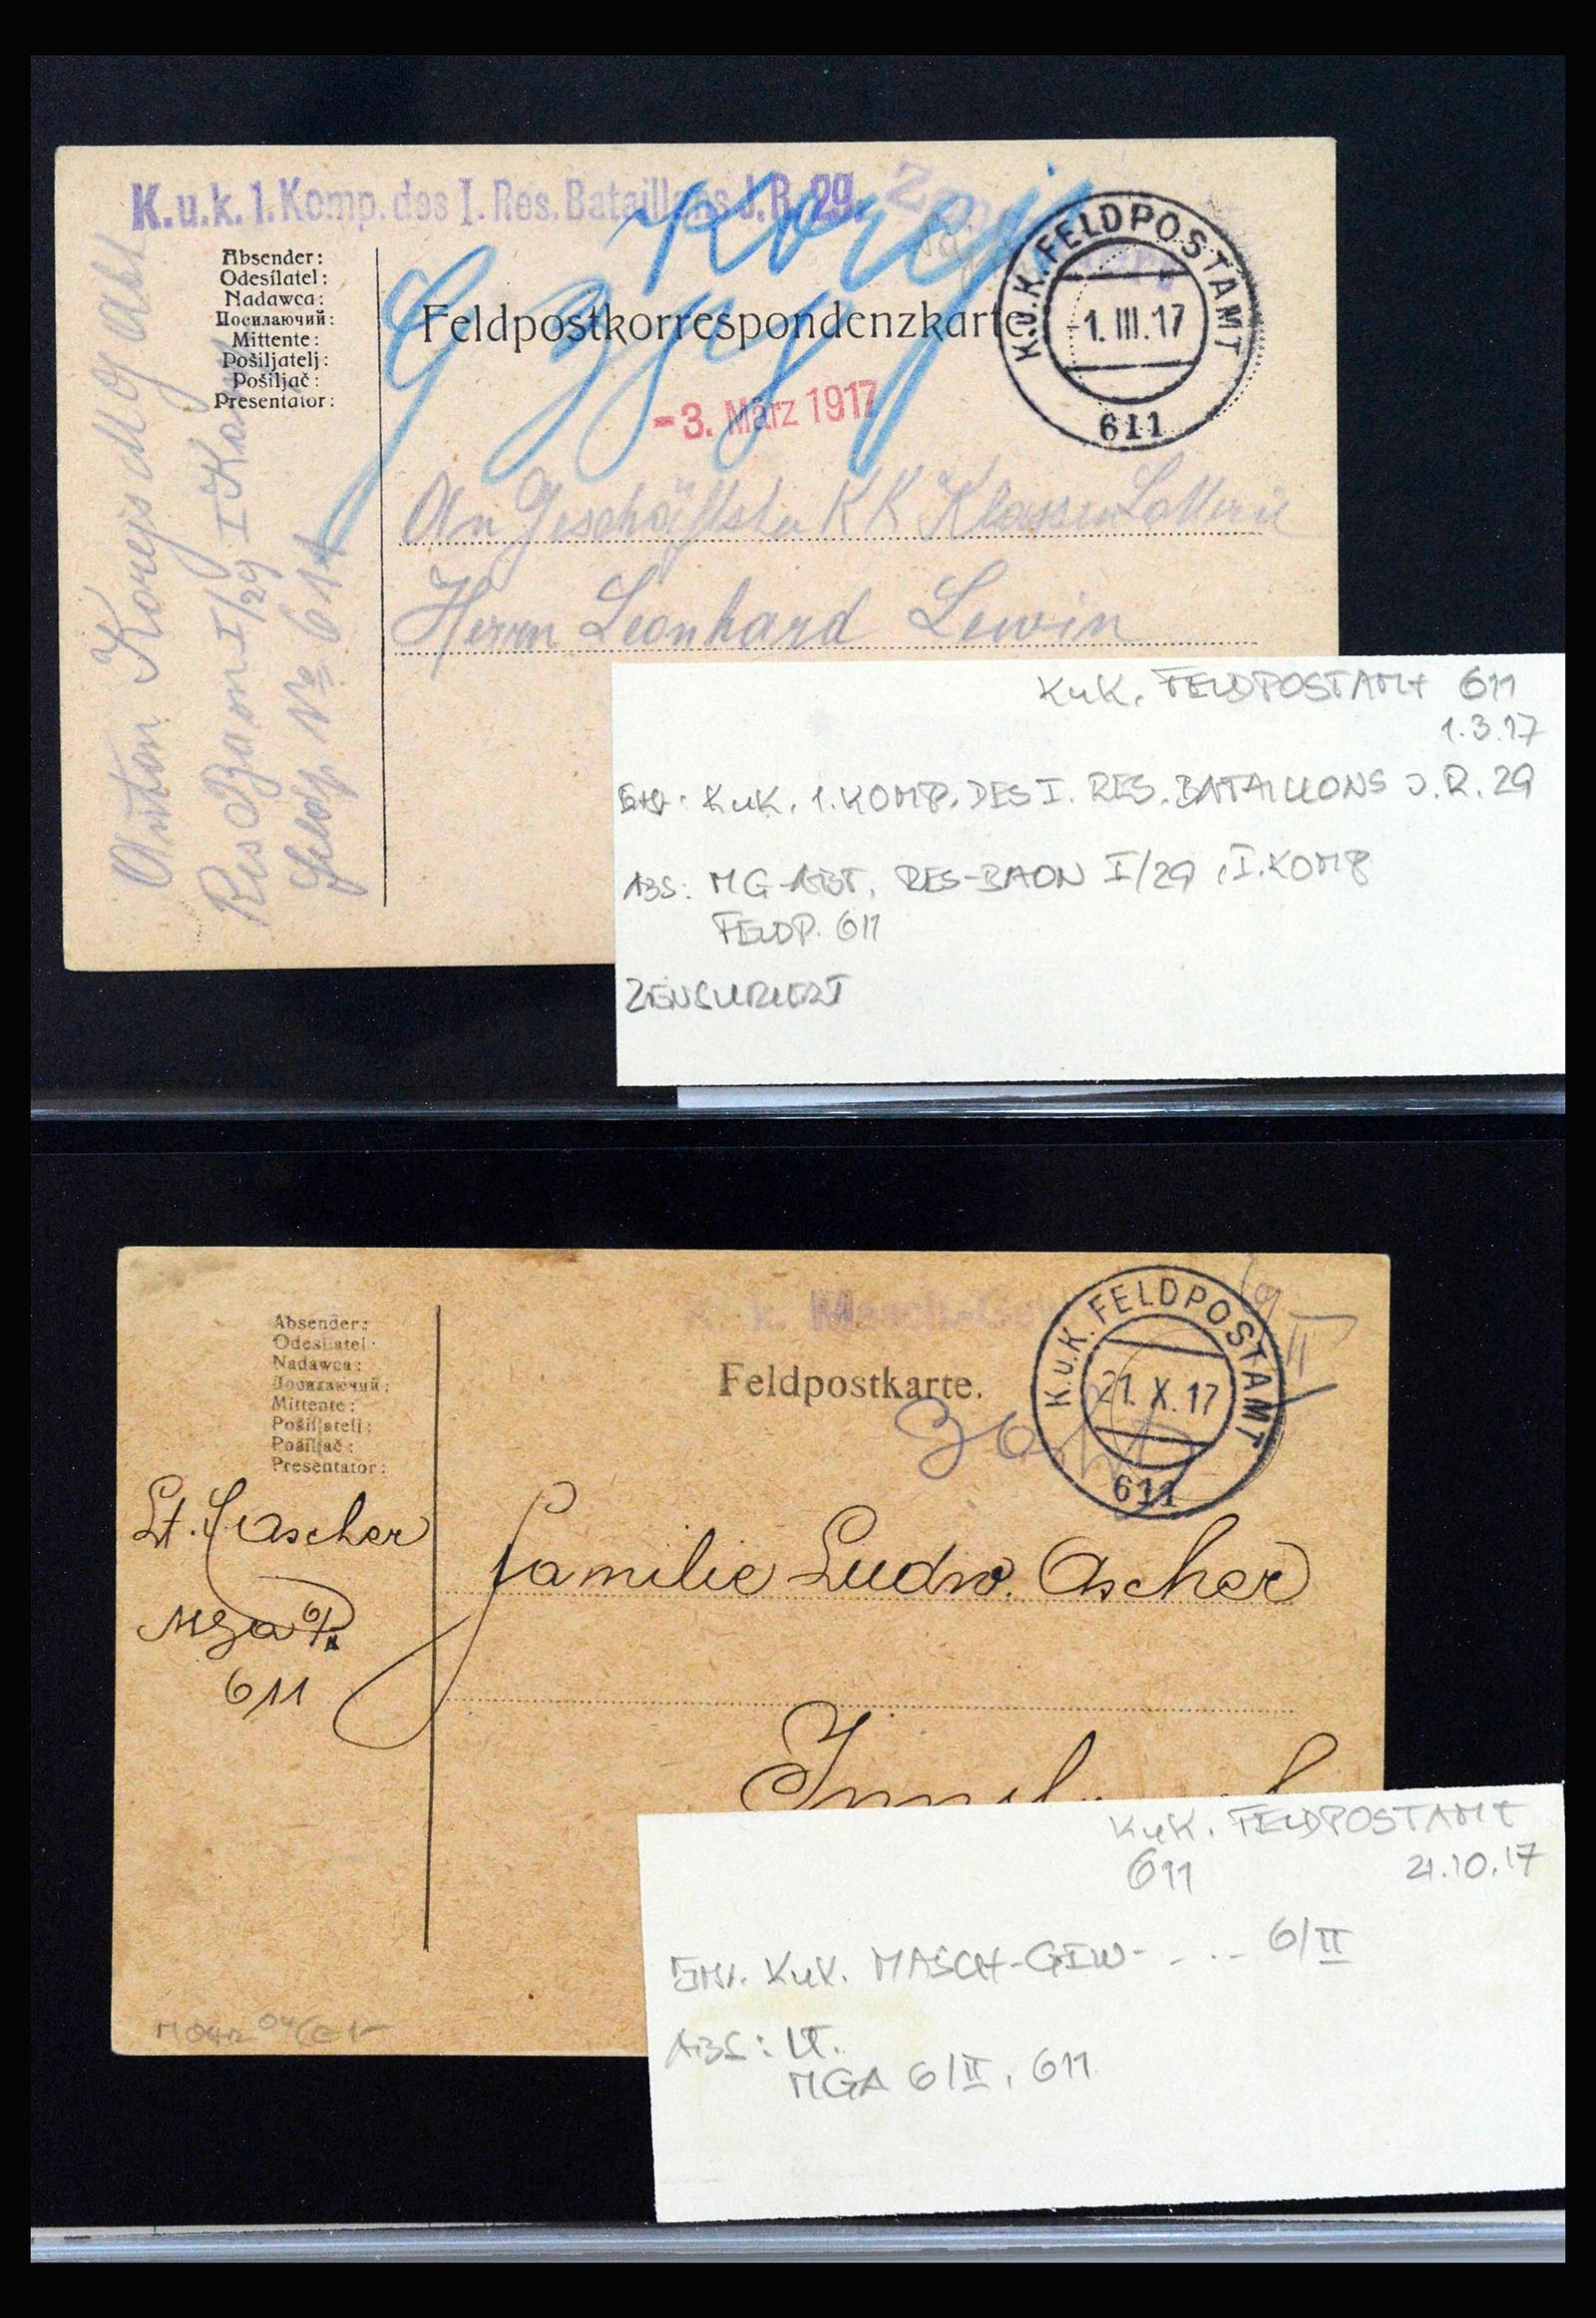 K.u.k. 1. Komp. des I. Res. Bataillons J.R. 29.
Absender:
Odesílatel:
Nadawca:
Посилаючий:
Mittente:
Pošiljatelj:
Pošiljač:
Presentator:
Feldpostkorrespondenzkarte
K.u.K. FELDPOSTAMT
-1. III. 17
611
-3. März 1917
An Geschäftste KK Klassen Lotterie
Herrn Leonhard Lewin
Anton Korejs MG abt
Res Baon I/29 I Komp
Feldp. № 611
KuK. FELDPOSTAMT 611
1.3.17
KuK. 1. KOMP. DES I. RES. BATAILLONS J.R. 29
ABS: MG-ABT. RES-BAON I/29, I. KOMP
FELDP. 611
ZENSURIERT
Masch.-Gew
Absender:
Odesílatel:
Nadawca:
Посилаючий:
Mittente:
Pošiljatelj:
Pošiljač:
Presentator:
Feldpostkarte.
K.u.K. FELDPOSTAMT
21. X. 17
611
Lt. Ascher
MGA 6/II
611
Familie Ludw. Ascher
KuK. FELDPOSTAMT
611 21.10.17
KuK. MASCH-GEW- - .. - 6/II
ABS: LT.
MGA 6/II, 611